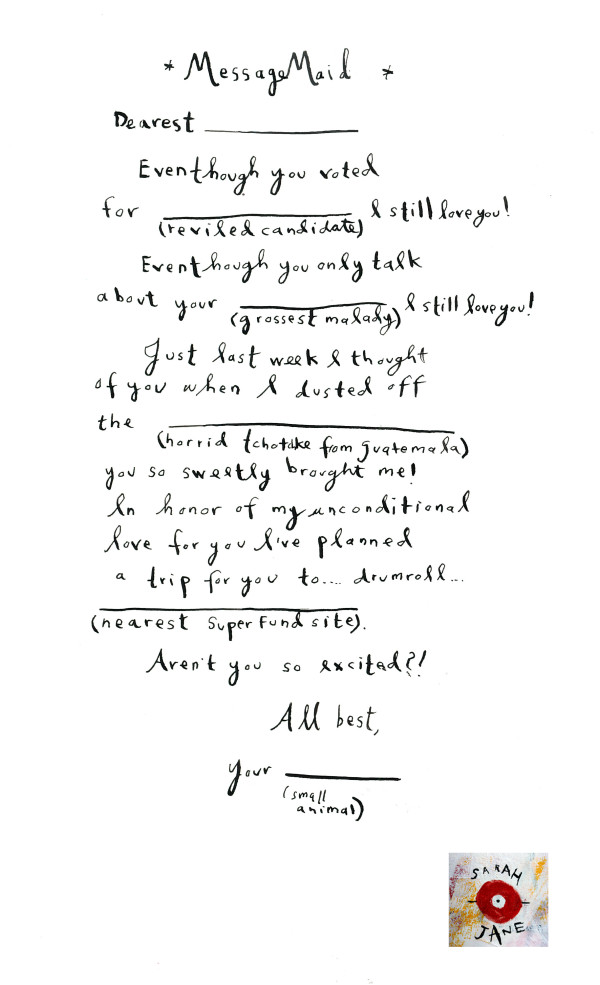 * MessageMaid *
Dearest ____________
Eventhough you voted
for ____________ I still love you!
(reviled candidate)
Eventhough you only talk
about your ____________ I still love you!
(grossest malady)
Just last week I thought
of you when I dusted off
the ____________
(horrid tchotchke from guatemala)
you so sweetly brought me!
In honor of my unconditional
love for you I've planned
a trip for you to.... drumroll...
____________
(nearest Superfund site).
Aren't you so excited?!
All best,
your ____________
(small
animal)
SARAH
JANE